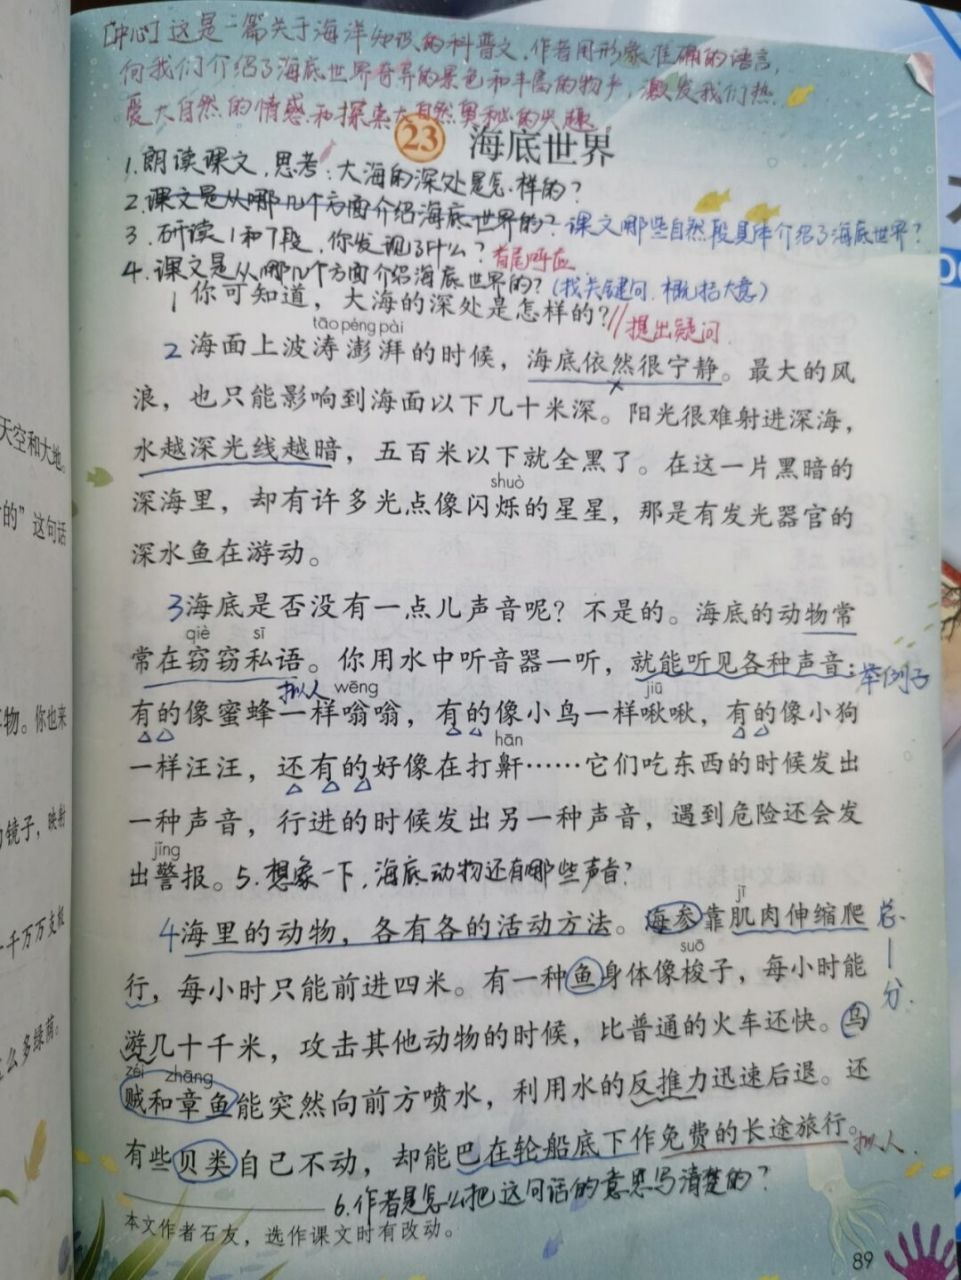 [中心]这是一篇关于海洋知识的科普文,作者用形象准确的语言,
向我们介绍了海底世界奇异的景色和丰富的物产,激发我们热
爱大自然的情感和探索大自然奥秘的兴趣。
23 海底世界
1.朗读课文,思考:大海的深处是怎样的?
2.课文是从哪几个方面介绍海底世界的?课文哪些自然段具体介绍了海底世界?
3.研读1和7段,你发现了什么?首尾呼应
4.课文是从哪几个方面介绍海底世界的?(找关键句,概括大意)
1 你可知道,大海的深处是怎样的?//提出疑问
tāo péng pài
2 海面上波涛澎湃的时候,海底依然很宁静。最大的风
浪,也只能影响到海面以下几十米深。阳光很难射进深海,
水越深光线越暗,五百米以下就全黑了。在这一片黑暗的
shuò
深海里,却有许多光点像闪烁的星星,那是有发光器官的
深水鱼在游动。
3 海底是否没有一点儿声音呢?不是的。海底的动物常
qiè sī
常在窃窃私语。你用水中听音器一听,就能听见各种声音:举例子
拟人 wēng jiū
有的像蜜蜂一样嗡嗡,有的像小鸟一样啾啾,有的像小狗
hān
一样汪汪,还有的好像在打鼾……它们吃东西的时候发出
一种声音,行进的时候发出另一种声音,遇到危险还会发
jǐng
出警报。5.想象一下,海底动物还有哪些声音?
jī
4 海里的动物,各有各的活动方法。海参靠肌肉伸缩爬 总
suō
行,每小时只能前进四米。有一种鱼身体像梭子,每小时能 | 分
游几十千米,攻击其他动物的时候,比普通的火车还快。乌
zéi zhāng
贼和章鱼能突然向前方喷水,利用水的反推力迅速后退。还
有些贝类自己不动,却能巴在轮船底下作免费的长途旅行。拟人
6.作者是怎么把这句话的意思写清楚的?
本文作者石友,选作课文时有改动。
89
天空和大地。
的”这句话
物。你也来
镜子,映射
千万万支
么多绿荫。